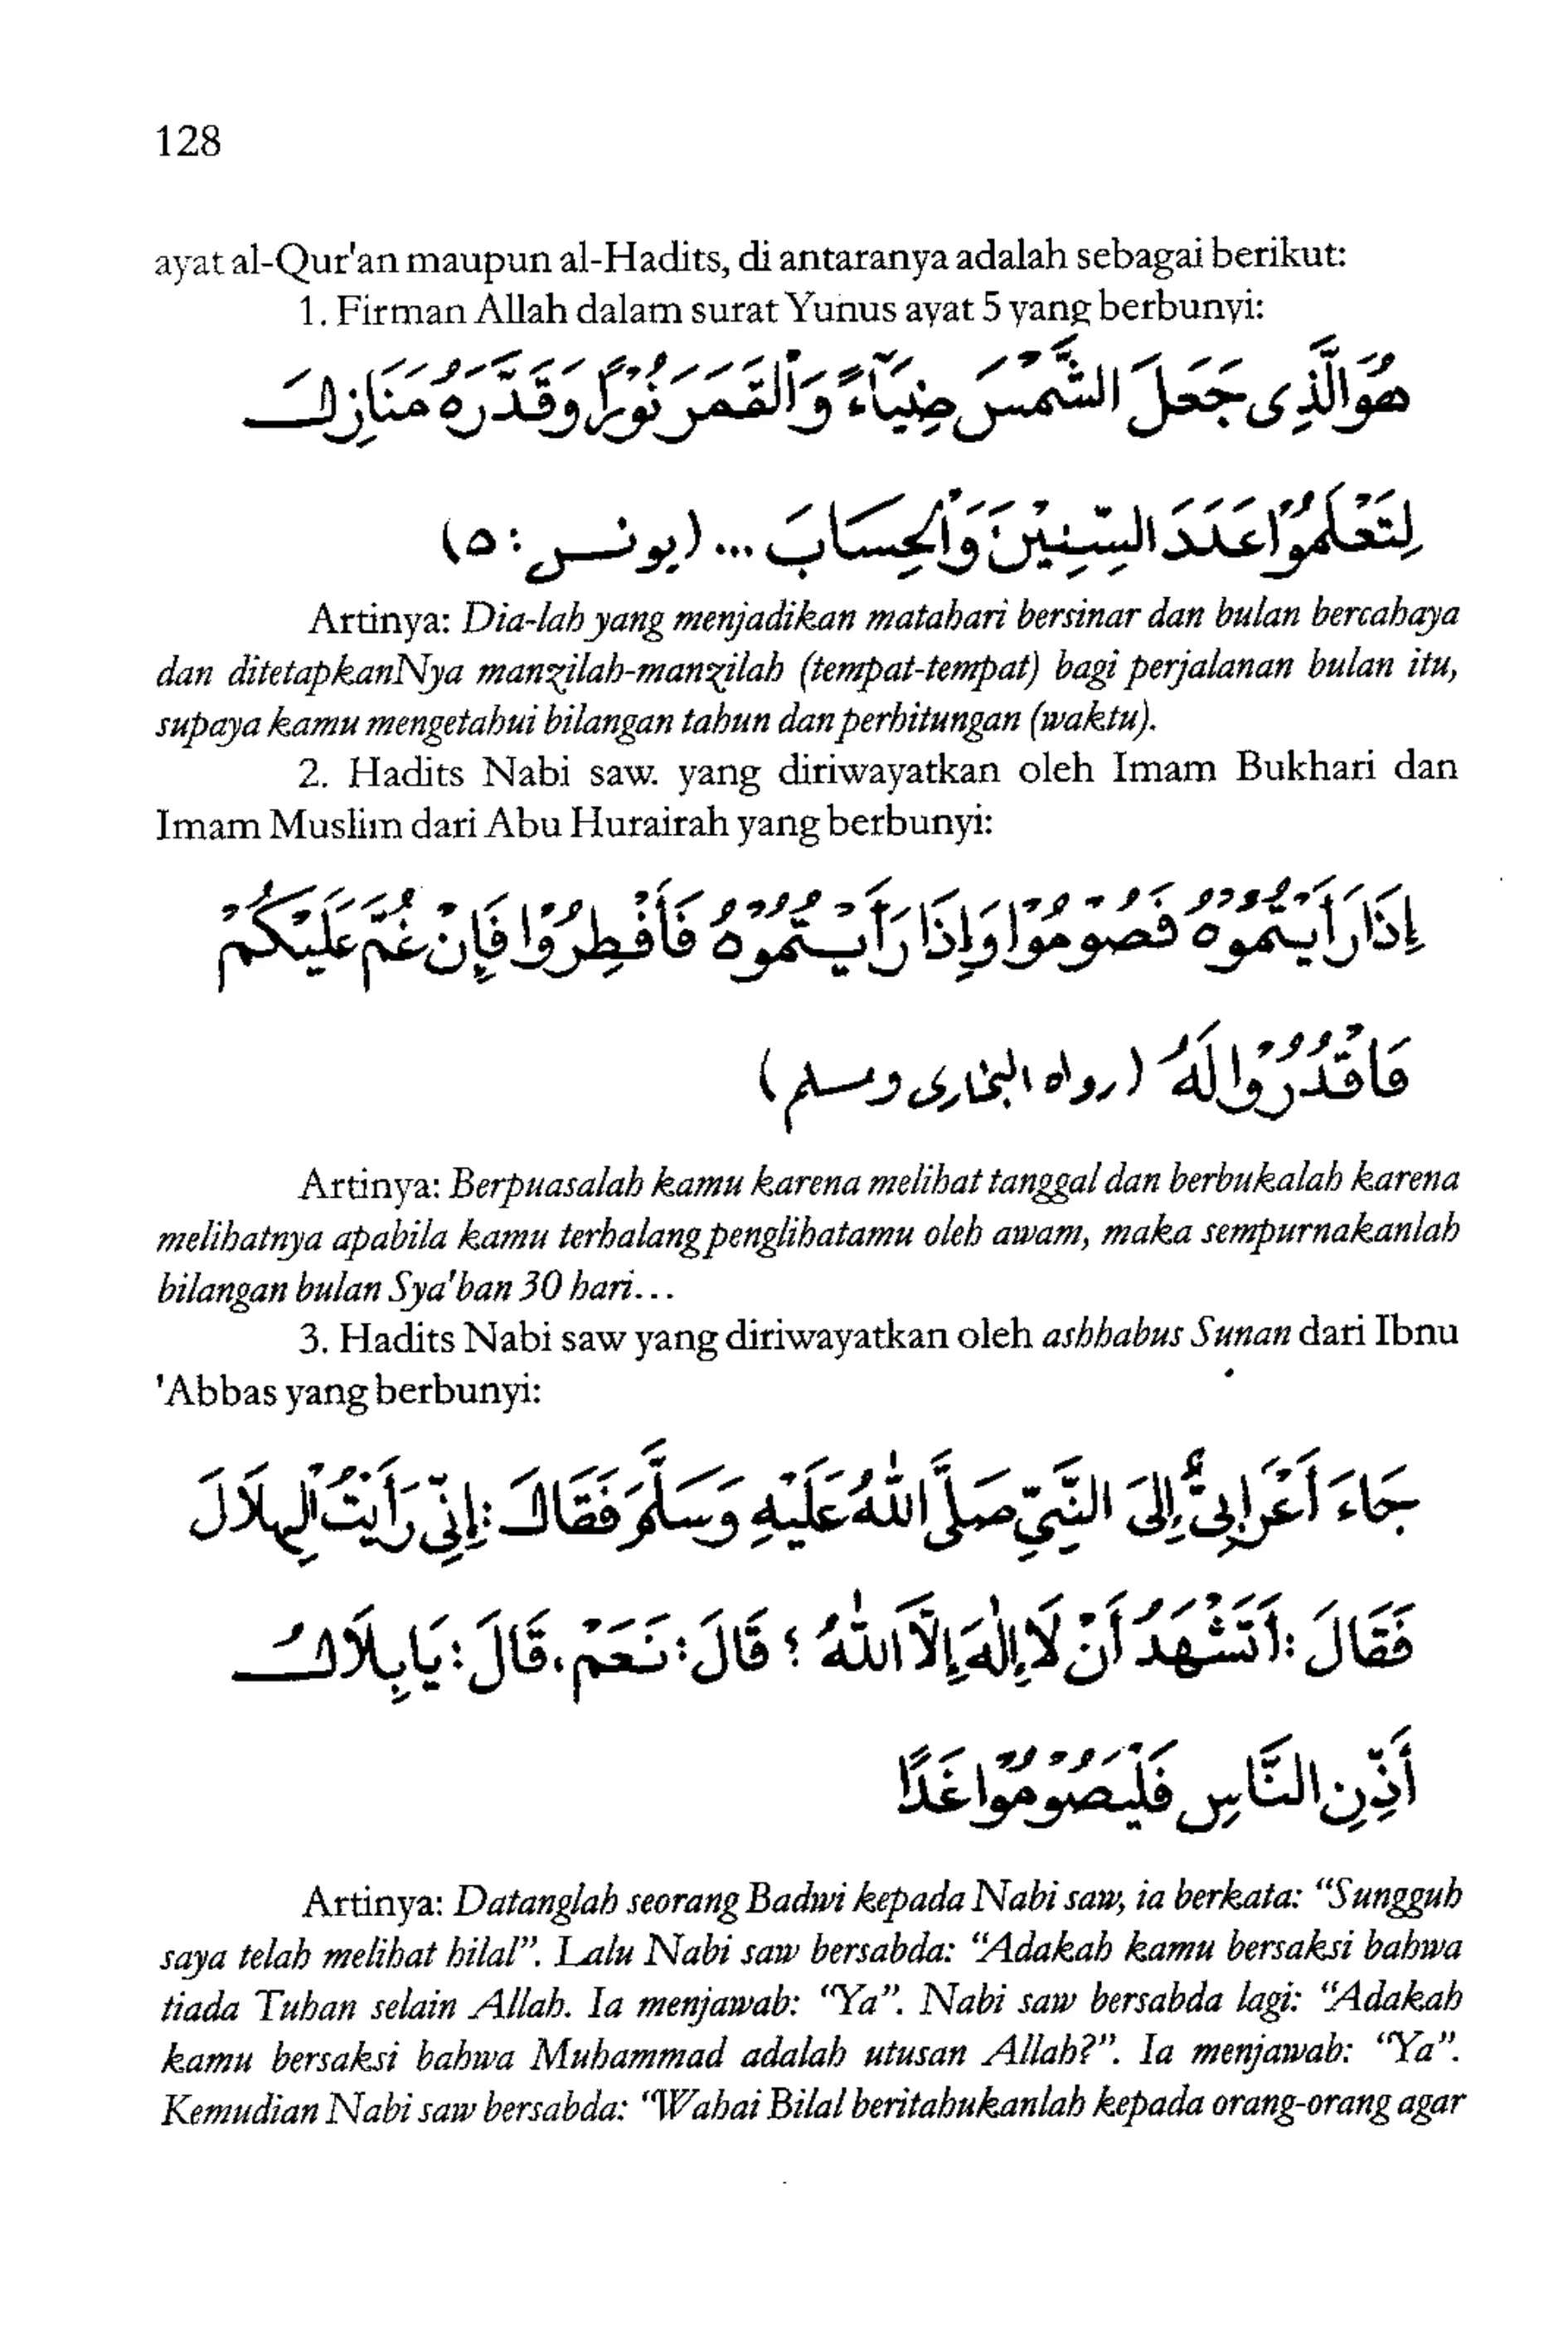 128
ayat al-Qur'an maupun al-Hadits, di antaranya adalah sebagai berikut:
1. Firman Allah dalam surat Yunus ayat 5 yang berbunyi:
هُوَالَّذِى جَعَلَ الشَّمْسَ ضِيَآءً وَالْقَمَرَ نُوْرًا وَقَدَّرَهُ مَنَازِلَ
لِتَعْلَمُوْا عَدَدَ السِّنِيْنَ وَالْحِسَابَ ... (يونس : ٥)
Artinya: Dia-lah yang menjadikan matahari bersinar dan bulan bercahaya
dan ditetapkanNya manzilah-manzilah (tempat-tempat) bagi perjalanan bulan itu,
supaya kamu mengetahui bilangan tahun dan perhitungan (waktu).
2. Hadits Nabi saw. yang diriwayatkan oleh Imam Bukhari dan
Imam Muslim dari Abu Hurairah yang berbunyi:
إِذَا رَأَيْتُمُوْهُ فَصُوْمُوْا وَإِذَا رَأَيْتُمُوْهُ فَأَفْطِرُوْا فَإِنْ غُمَّ عَلَيْكُمْ
فَاقْدُرُوْا لَهُ (رواه البخارى ومسلم)
Artinya: Berpuasalah kamu karena melihat tanggal dan berbukalah karena
melihatnya apabila kamu terhalang penglihatamu oleh awam, maka sempurnakanlah
bilangan bulan Sya'ban 30 hari...
3. Hadits Nabi saw yang diriwayatkan oleh ashhabus Sunan dari Ibnu
'Abbas yang berbunyi:
جَاءَ أَعْرَابِيٌّ إِلَى النَّبِيِّ صَلَّى اللهُ عَلَيْهِ وَسَلَّمَ فَقَالَ : إِنِّيْ رَأَيْتُ الْهِلَالَ
فَقَالَ : أَتَشْهَدُ أَنْ لَا إِلٰهَ إِلَّا اللهُ ؟ قَالَ : نَعَمْ . قَالَ : يَا بِلَالُ
أَذِّنْ النَّاسِ فَلْيَصُوْمُوْا غَدًا
Artinya: Datanglah seorang Badwi kepada Nabi saw, ia berkata: “Sungguh
saya telah melihat hilal”. Lalu Nabi saw bersabda: “Adakah kamu bersaksi bahwa
tiada Tuhan selain Allah. Ia menjawab: “Ya”. Nabi saw bersabda lagi: “Adakah
kamu bersaksi bahwa Muhammad adalah utusan Allah?”. Ia menjawab: “Ya”.
Kemudian Nabi saw bersabda: “Wahai Bilal beritahukanlah kepada orang-orang agar